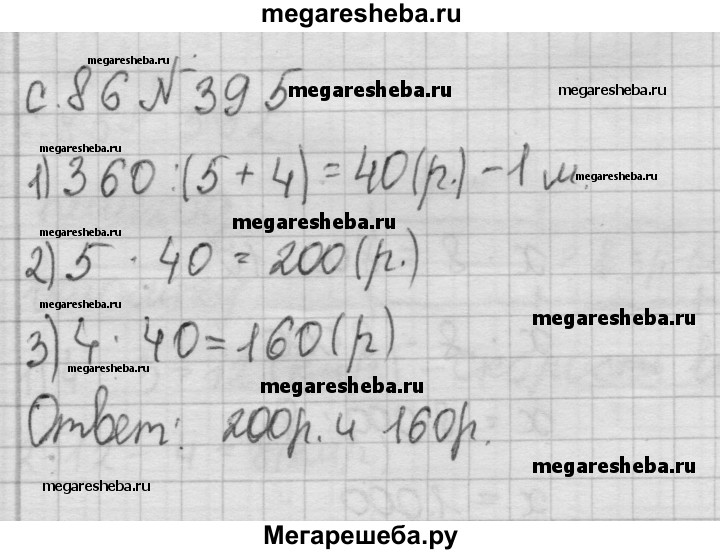 megaresheba.ru
megaresheba.ru
с.86 № 395 megaresheba.ru megaresheba.ru
1) 360:(5+4)=40(р.)-1м. megaresheba.ru
megaresheba.ru
megaresheba.ru megaresheba.ru
2) 5·40=200(р.)
megaresheba.ru
megaresheba.ru
3) 4·40=160(р)
megaresheba.ru
megaresheba.ru
Ответ: 200р. и 160р.
megaresheba.ru
megaresheba.ru
Мегарешеба.ру